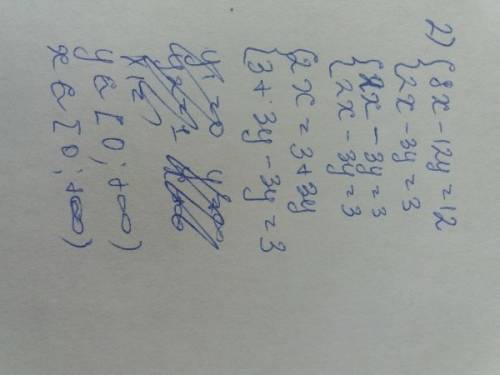 2) { 8x - 12y = 12
{ 2x - 3y = 3
{ 2x - 3y = 3
{ 2x - 3y = 3
{ 2x = 3 + 3y
{ 3 + 3y - 3y = 3
y ∈ [0; +∞)
x ∈ [0; +∞)